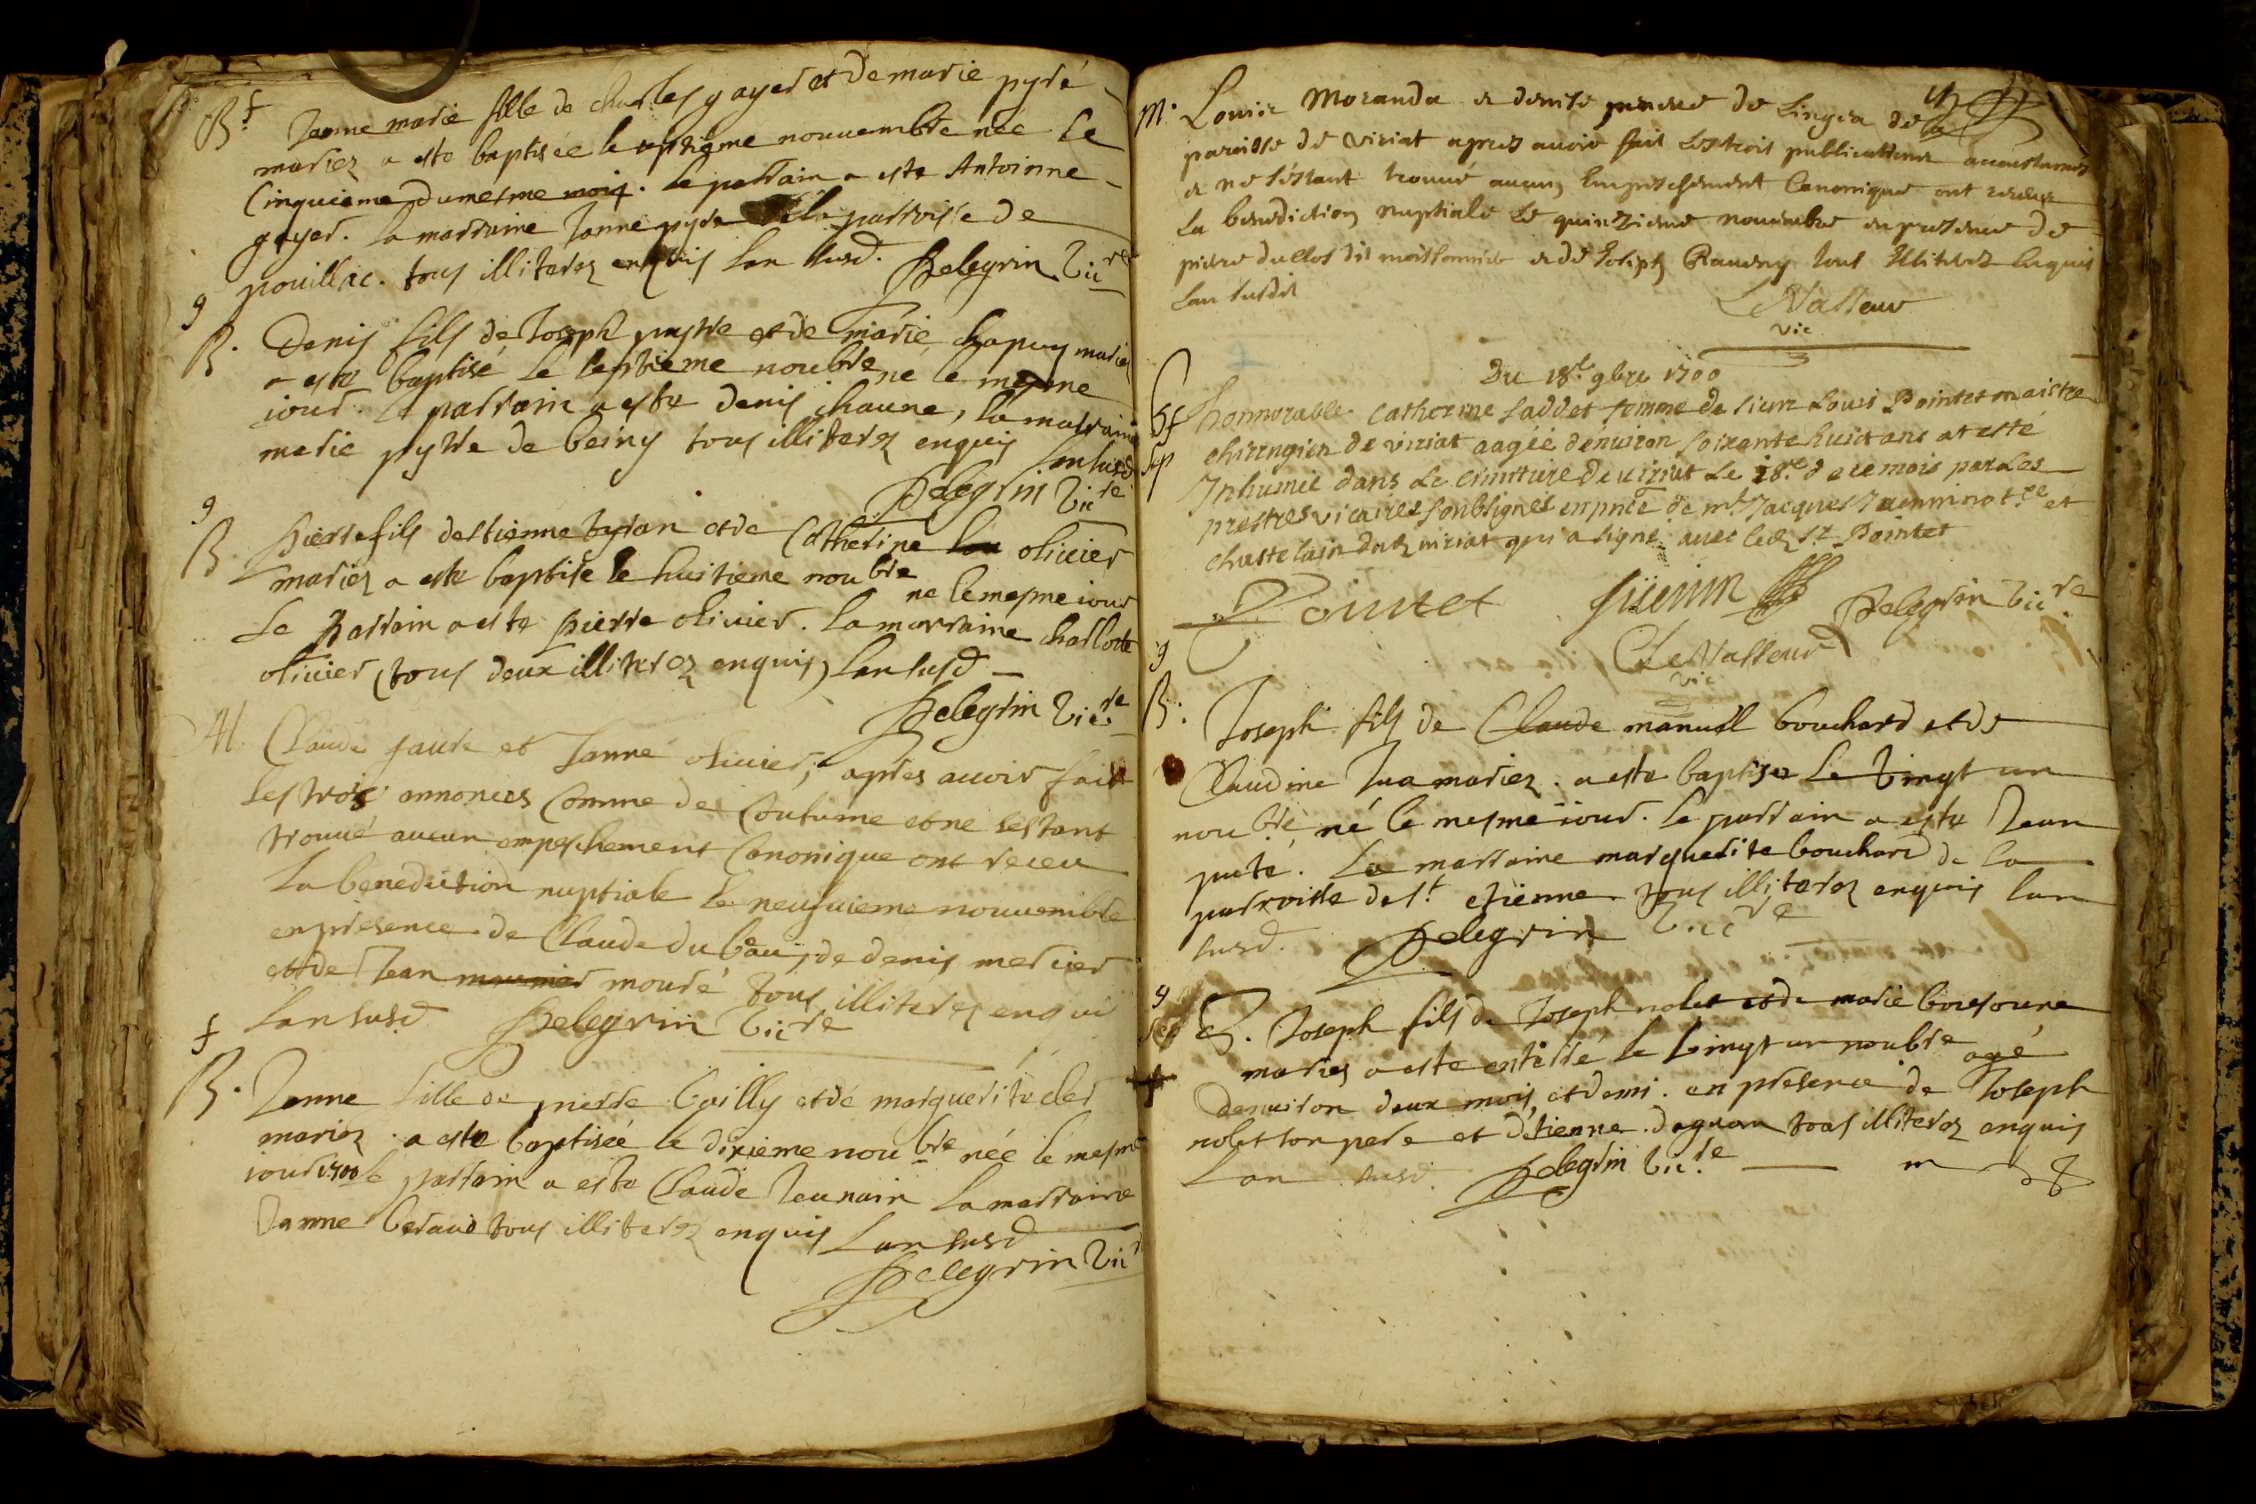 B. f Janne marie fille de charles gayer et de marie pyré
mariez a esté baptisée le septieme nouuembre née le
Cinquieme dumesme mois. le parrain a este Antoinne
gayer. la marraine Janne pyre de la parroisse de
pouillac. tous illiterez enquis lan susd. Pelegrin Vic.re
g
B. Denis fils de Joseph pystre et de marie chapuy mariez
a esté baptisé le septieme noubre né le mesme
iour. le parrain a este denis chaune, la marraine
marie pystre de beiny tous illiterez enquis lan susd
Pelegrin Vic.re
g
B. Pierre fils destienne tyran et de Catherine olivier
mariez a este baptise le huitieme noubre
ne le mesme iour
Le Parrain a este pierre olivier. la marraine charlote
olivier (tous deux illiterez enquis) lan susd
Pelegrin Vic.re
M. Claude faure et Janne olivier, apres auoir fait
les trois annonces Comme de Coutume et ne sestant
trouué aucun empeschement Canonique ont receu
la benediction nuptiale le neufuieme nouuembre
en presence de Claude du beau, de denis mercier
et de Jean mounier mouré tous illiterez enqui
lan susd Pelegrin Vic.re
f
B. Janne fille de pierre bailly et de marguerite cler
mariez. a este baptisée le dixieme noubre née le mesme
iour 1700 le parrain a este Claude Jeunain la marraine
Janne beraud tous illiterez enquis lan susd
Pelegrin Vic
M. Louis Moranda et denise de Lingea de la
paroisse de viriat apres auoir fait les trois publications accoustumees
et ne séstant trouué aucun Empeschement Canonique ont receu
La bénédiction nuptiale Le quinzieme nouembre en presence de
pierre dullos dit moissonnier et de Joseph Raueny tous Illiterez Enquis
Lan susdit
LeVasseur
vic
Du 18.e 9bre 1700
Sf
sep
honnorable catherine saddet femme de sieur Louis Pointet maistre
chirurgien de viriat aagée denuiron soixante huict ans at esté
Inhumée dans Le cimitiere de uiriat Le 18.e de ce mois par Les
prestres vicaires soubsignés en pnce de mr Jacques Juennin not.re et
chastelain dud uiriat qui a signé auec led sr. Pointet
Pointet Jüenin Pelegrin Vic.re
LeVasseur
vic
g
B. Joseph fils de Claude manuel bouchard et de
Claudine Jua mariez. a este baptise le Vingt un
noubre né le mesme iour. le parrain a este Jean
puité. La marraine marguerite bouchard de la
parroisse de st. etienne tous illiterez enquis lan
susd. Pelegrin Vic.re
g
sep E. Joseph fils de Joseph nolet et de marie
mariez a este enterré le Vingt un noubre agé
denuiron deux mois et demi. en presence de Joseph
nolet son pere et détienne daguan tous illiterez enquis
Lan susd. Pelegrin Vic.re